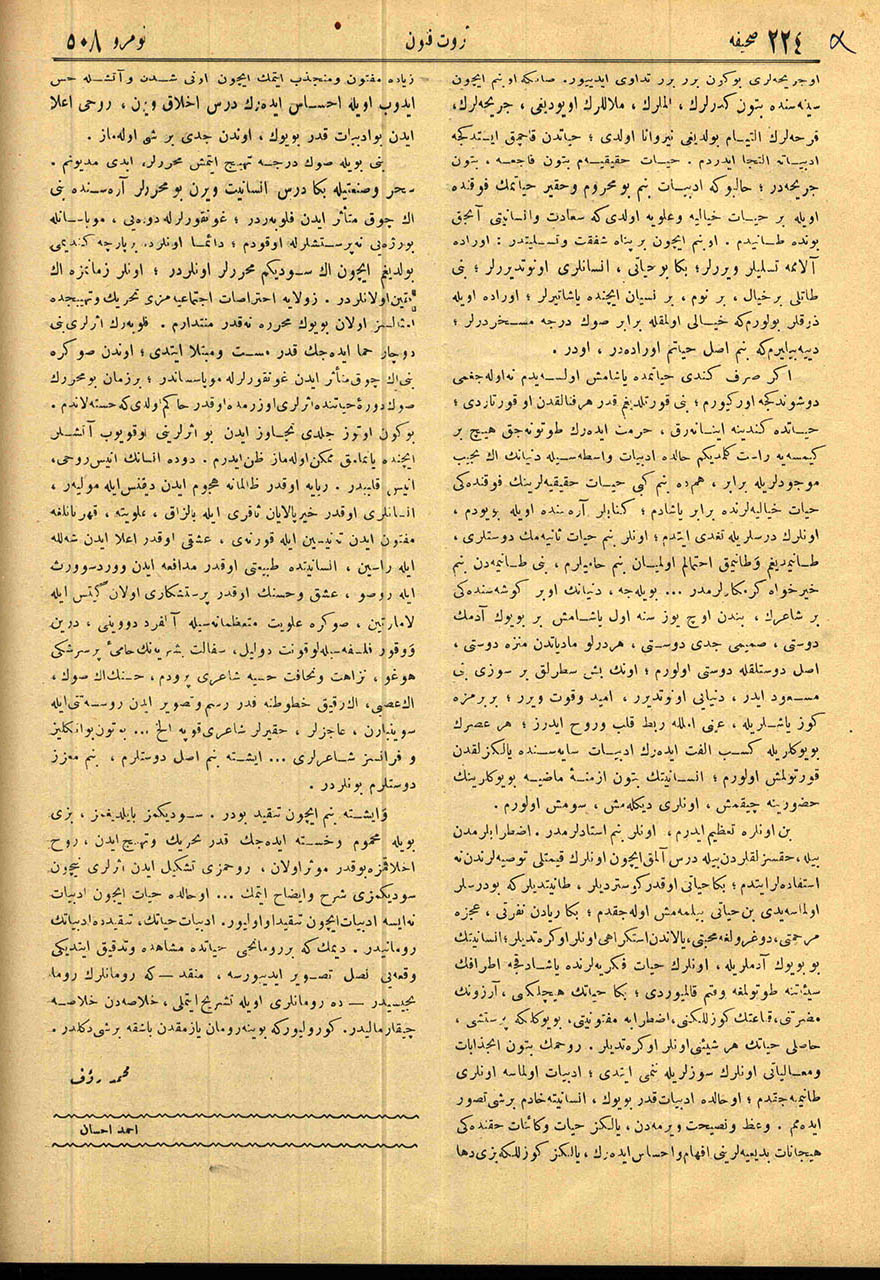 صحیفه ٢٢٤
ثروت فنون
نومرو ٥٠٨
او جریحه‌لری بوکون برر برر تداوی ایدییور. صانکه او بنم ایچون
سینه‌سنده بتون کدرلرك ، الملرك ، ملاللرك اویودیغی ، جریحه‌لرك،
قرحه‌لرك التیام بولدیغی نیروانا اولدی ؛ حیاتدن قاچمق ایستدکجه
ادبیاته التجا ایدردم . حیات حقیقیه‌م بتون فاجعه ، بتون
جریحه‌در ؛ حالبوکه ادبیات بنم بومحروم وحقیر حیاتمك فوقنده
اویله بر حیات خیالیه وعلویه اولدی‌که سعادت وانسانیتی آنجق
بونده طانیدم . او بنم ایچون بر پناه شفقت وتسلیتدر : اوراده
آلامه تسلیلر ویررلر؛ بکا بوحیاتی ، انسانلری اونوتدیررلر ؛ بنی
طاتلی برخیال ، بر نوم ، بر نسیان ایچنده یاشاتیرلر ؛ اوراده اویله
ذوقلر بولورم‌که خیالی اولمقله برابر صوك درجه مسخردرلر ؛
دییه‌بیلیرم‌که بنم اصل حیاتم اوراده‌در ، اودر .
اکر صرف کندی حیاتمده یاشامش اولسه‌یدم نه‌اوله‌جغمی
دوشوندکجه اورکیورم ؛ بنی قورتلدیغم قدر هرفنالقدن او قورتاردی ؛
حیاتده کندینه اینانه‌رق ، حرمت ایده‌رك طوتونه‌جق هیچ بر
کیمسه‌یه راست کلمدیکم حالده ادبیات واسطه‌سیله دنیانك اك نجیب
موجودلریله برابر ، هم‌ده بنم کبی حیات حقیقیه‌لرینك فوقنده‌کی
حیات خیالیه‌لرنده برابر یاشادم ؛ کتابلر آره‌سنده اویله بویودم ،
اونلرك درسلریله تغدی ایتدم ؛ اونلر بنم حیات ثانیه‌مك دوستلری ،
طانیمدیغم وطانیمق احتمالم اولمیان بنم حامیلرم ، بنی طانیمه‌دن بنم
خیرخواه کرمکارلرمدر ... بویله‌جه ، دنیانك اوبر کوشه‌سنده‌کی
بر شاعرك ، بندن اوچ یوز سنه اول یاشامش بر بویوك آدمك
دوستی ، صمیمی جدی دوستی ، هردرلو مادیاتدن منزه دوستی ،
اصل دوستلقله دوستی اولورم ؛ اونك بش سطرلق بر سوزی بنی
مسعود ایدر ، دنیایی اونوتدیرر ، امید وقوت ویرر ؛ بربرمزه
کوز یاشلریله ، عینی املله ربط قلب وروح ایدرز ؛ هر عصرك
بویوکلریله کسب الفت ایده‌رك ادبیات سایه‌سنده یالکزلقدن
قورتولمش اولورم ؛ انسانیتك بتون ازمنهٔ ماضیه بویوکلرینك
حضورینه چیقمش ، اونلری دیکله‌مش ، سومش اولورم .
بن اونلره تعظیم ایدرم ، اونلر بنم استادلرمدر . اضطرابلرمدن
بیله ، حقسزلقلردن بیله درس آلمق ایچون اونلرك قیمتلی توصیه‌لرندن نه
استفاده‌لر ایتدم ؛ بکا حیاتی اوقدر کوستردیلر ، طانیتدیلر که بودرسلر
اولماسه‌یدی بن حیاتی بیلمه‌مش اوله‌جقدم ؛ بکا ریادن نفرتی ، عجزه
مرحمتی، دوغرولغه محبتی، یالاندن استکراهی اونلر اوکره‌تدیلر ؛ انسانیتك
بو بویوك آدملریله ، اونلرك حیات فکریه‌لرنده یاشادقجه اطرافك
سیئاتنه طوتولمغه وقتم قالمیوردی ؛ بکا حیاتك هیچلکنی ، آرزونك
مضرتنی، قناعتك کوزللکنی، اضطرابه مفتونیتی، بویوکلکه پرستشی ،
حاصلی حیاتك هر شیئنی اونلر اوکره‌تدیلر . روحمك بتون انجذابات
ومعالیاتی اونلرك سوزلریله نمی ایتدی ؛ ادبیات اولماسه اونلری
طانیمه‌جقدم ؛ اوحالده ادبیات قدر بویوك ، انسانیته خادم برشی تصور
ایده‌مم . وعظ ونصیحت ویرمه‌دن ، یالکز حیات وکائنات حقنده‌کی
هیجانات بدیعیه‌لرینی افهام واحساس ایده‌رك ، یالکز کوزللکه بزی دها
زیاده مفتون ومنجذب ایتمك ایچون اونی شدن وآتشله حس
ایدوب اویله احساس ایده‌رك درس اخلاق ویرن ، روحی اعلا
ایدن بوادبیات قدر بویوك ، اوندن جدی بر شی اوله‌ماز .
بنی بویله صوك درجه تهییج ایتمش محررلره ابدی مدیونم .
سحر وصنعتیله بکا درس انسانیت ویرن بو محررلر آره‌سنده بنی
اك چوق متأثر ایدن فلوبه‌ردر ؛ غونقورلرله دوده‌یی ، موپاسانله
بورژه‌یی نه‌پرستشلرله اوقودم ؛ دائما اونلرده برپارچه کندیمی
بولدیغم ایچون اك سودیکم محررلر اونلردر ؛ اونلر زمانمزه اك
اولانلردر . زولایه احتراصات اجتماعیه‌مزی تحریك وتهییجده
امثالسز اولان بویوك محرره نه‌قدر منتدارم . فلوبه‌رك اثرلری بنی
دوچار حما ایده‌جك قدر مست ومبتلا ایتدی ؛ اوندن صوکره
بنی اك چوق متأثر ایدن غونقورلرله موپاساندر ؛ برزمان بو محررك
صوك دورهٔ حیاتنده اثرلری اوزرمده اوقدر حاکم اولدی که خسته‌لاندم .
بوکون اوتوز جلدی تجاوز ایدن بو اثرلرینی اوقویوب آتشلر
ایچنده یانمامق ممکن اوله‌ماز ظن ایدرم . دوده انسانك انیس روحی،
انیس قلبیدر . ریایه اوقدر ظالمانه هجوم ایدن دیقنس ایله مولیه‌ر ،
انسانلری اوقدر خیرپالایان تاقری ایله بالزاق ، علویته ، قهرمانلغه
مفتون ایدن ته‌نیسن ایله قورنه‌ی ، عشقی اوقدر اعلا ایدن شه‌لله
ایله راسین ، انسانیتده طبیعتی اوقدر مدافعه ایدن ووردسوورث
ایله روصو ، عشق وحسنك اوقدر پرستشکاری اولان کیتس ایله
لامارتین ، صوکره علویت متعظمانه‌سیله آلفرد دووینی ، درین
ووقور فلسفه‌سیله لوقونت دولیل، سفالت بشریه‌نك حامیٔ پرسرشکی
هوغو ، نزاهت ونحافت حسیه شاعری پرودم ، حسنك اك صوك ،
اك عصبی ، اك رقیق خطوطنه قدر رسم وتصویر ایدن روسه‌تتی ایله
سوینبارن ، عاجزلر ، حقیرلر شاعری قوپه الخ ... به‌تون بو انکلیز
و فرانسز شاعرلری ... ایشته بنم اصل دوستلرم ، بنم معزز
دوستلرم بونلردر .
وایشته بنم ایچون تنقید بودر . سودیکمز بایلدیغمز ، بزی
بویله محموم وخسته ایده‌جك قدر تحریك وتهییج ایدن ، روح
اخلاقمزه بوقدر موثر اولان ، روحمزی تشکیل ایدن اثرلری نیچون
سودیکمزی شرح وایضاح ایتمك ... اوحالده حیات ایچون ادبیات
نه‌ایسه ادبیات ایچون تنقید او اولیور. ادبیات حیاتك، تنقیدده ادبیاتك
رومانیدر . دیمك که بررومانجی حیاتده مشاهده وتدقیق ایتدیکی
وقعه‌یی نصل تصویر ایدییورسه ، منقد — که رومانلرك رومانجیسیدر — ده
رومانلری اویله تشریح ایتملی ، خلاصه‌دن خلاصه
چیقارمالیدر. کورولیورکه بوینه‌رومان یازمقدن باشقه برشی دکلدر.
محمد رؤف
احمد احسان